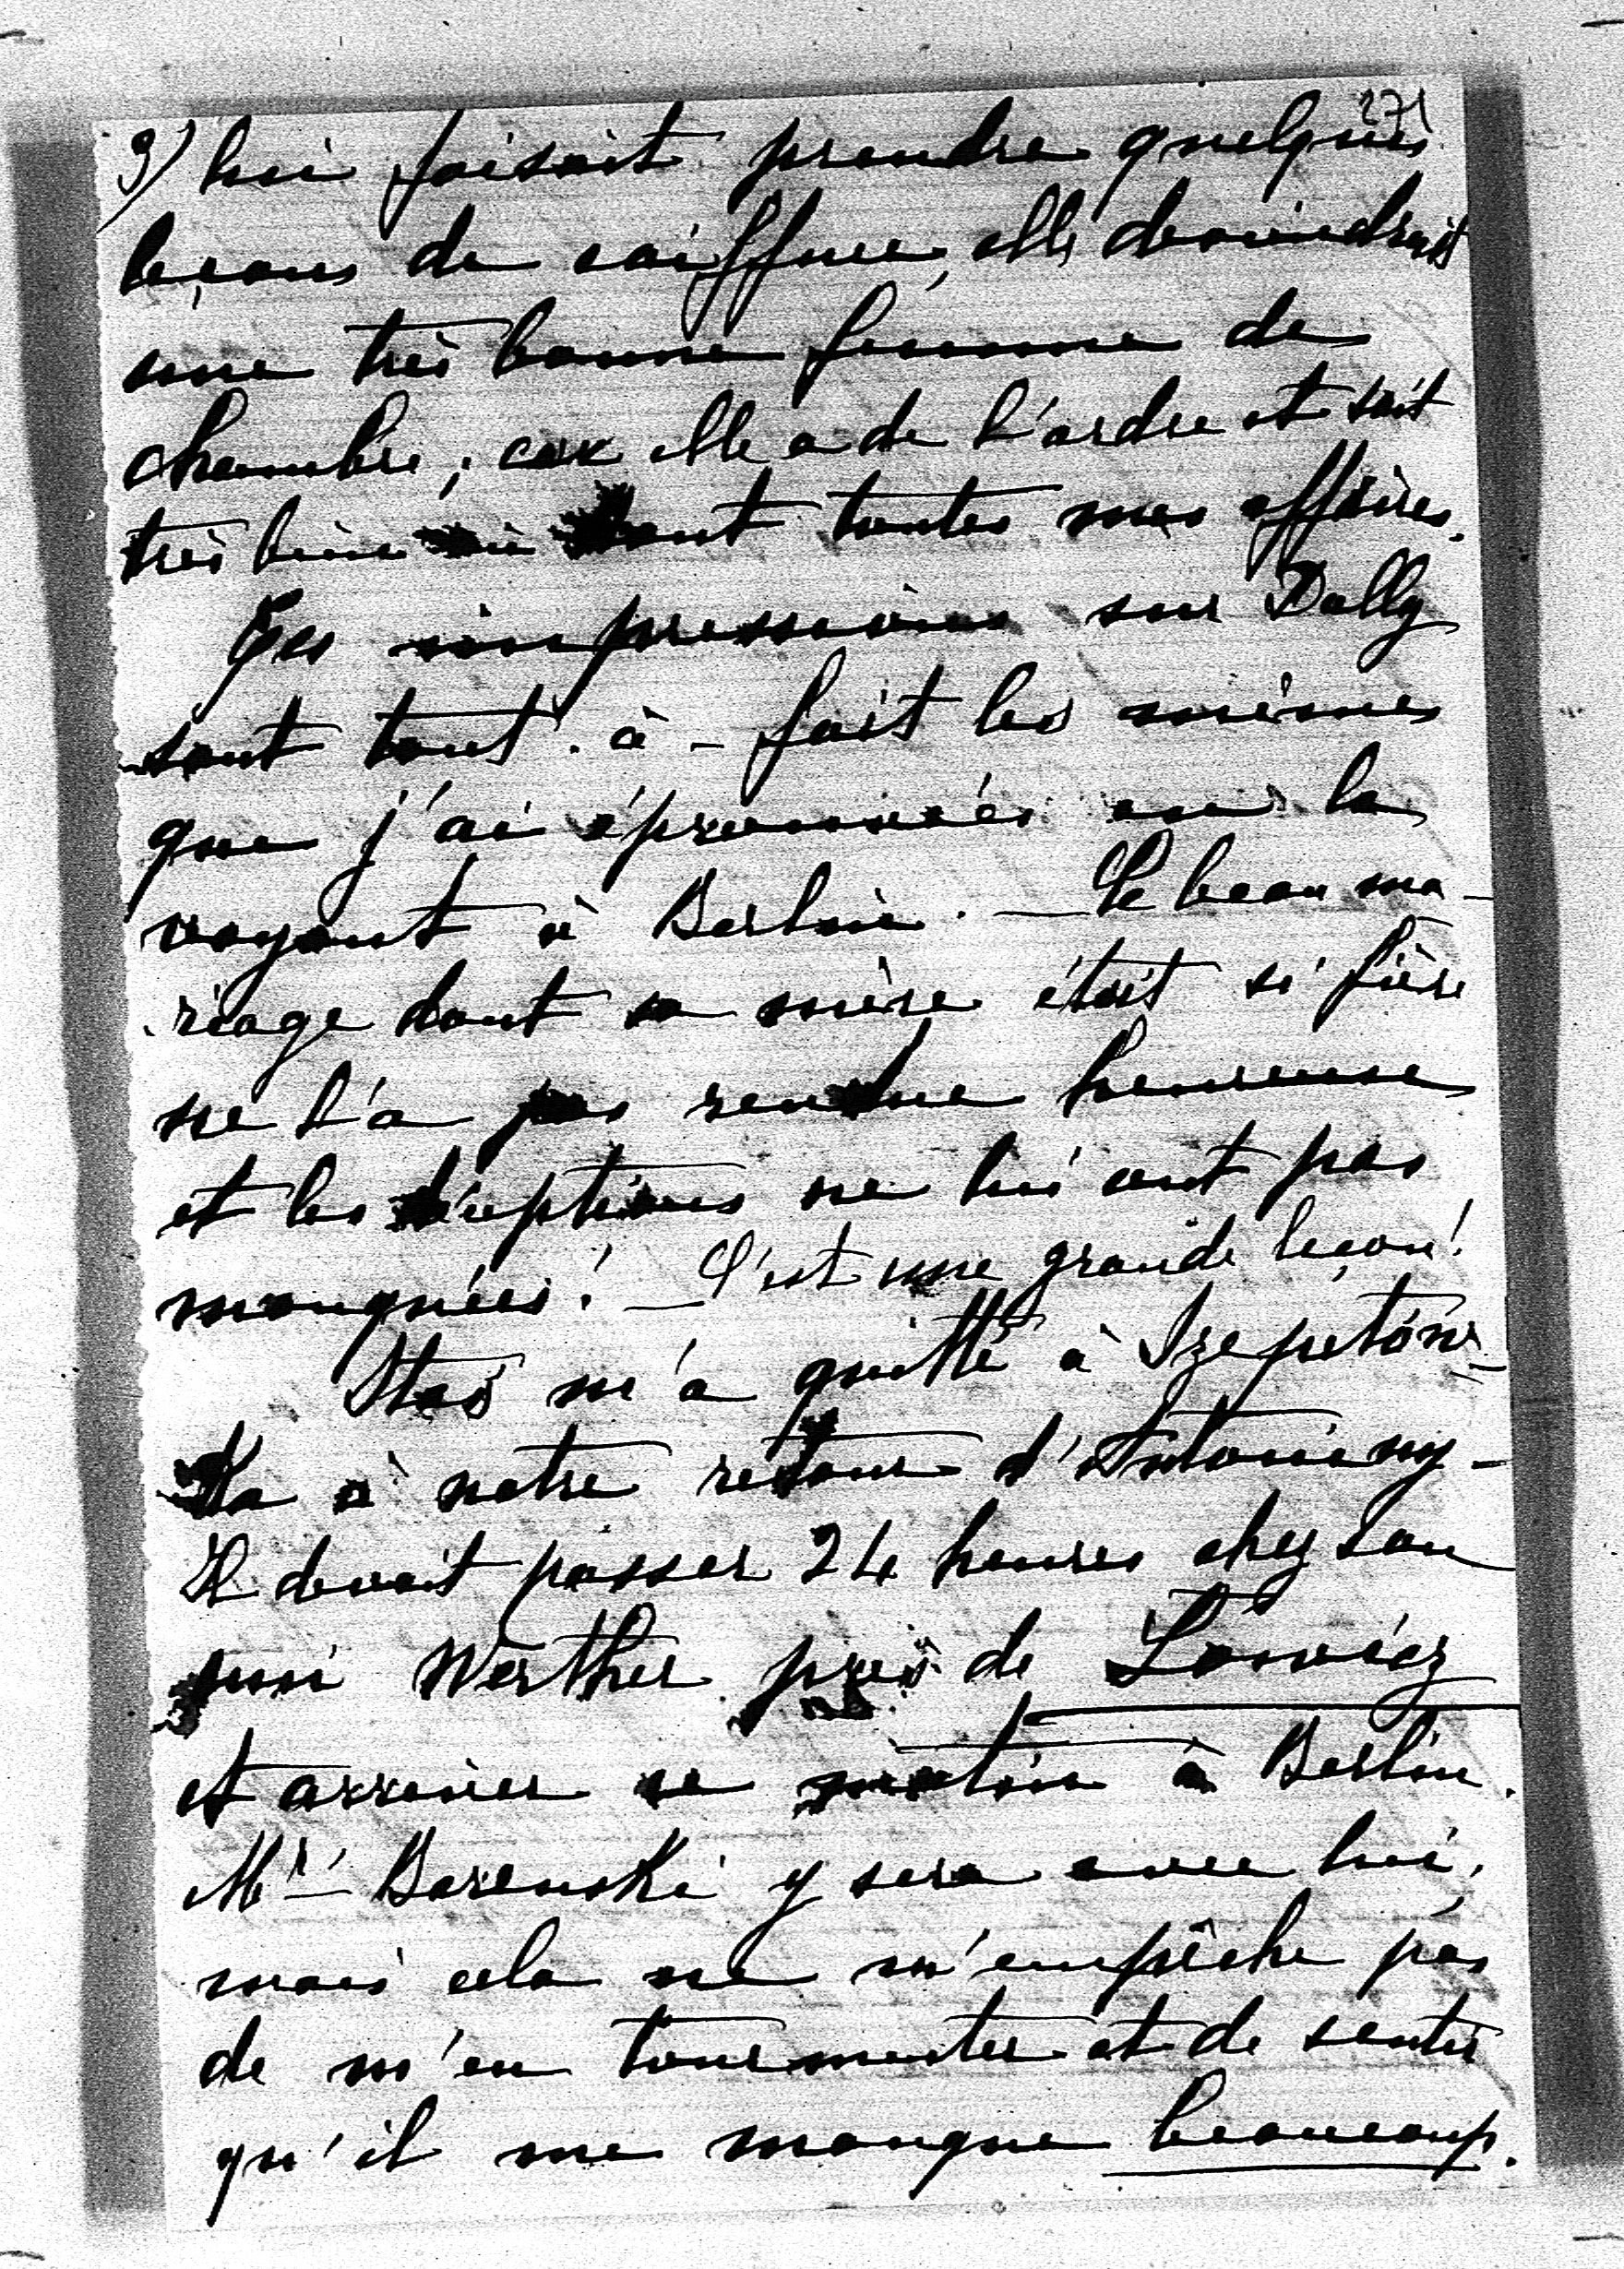 271
9/ lui faisait prendre quelques
leçons de coiffure, elle deviendrait
une très bonne femme de
chambre, car elle a de l'ordre et sait
très bien où sont toutes mes affaires.
Tes impressions sur Dolly
sont tout-à-fait les mêmes
que j'ai éprouvées en la
voyant à Berlin. — Le beau ma-
riage dont sa mère était si fière
ne l'a pas rendue heureuse
et les déceptions ne lui ont pas
manquées! — C'est une grande leçon!
Stas m'a quitté à Szepetów-
ka à notre retour d'Antoniny -
Il devait passer 24 heures chez son
ami Werther près de Łowicz
et arriver ce matin à Berlin.
Mr Barenski y sera avec lui,
mais cela ne m'empêche pas
de m'en tourmenter et de sentir
qu'il me manque beaucoup.